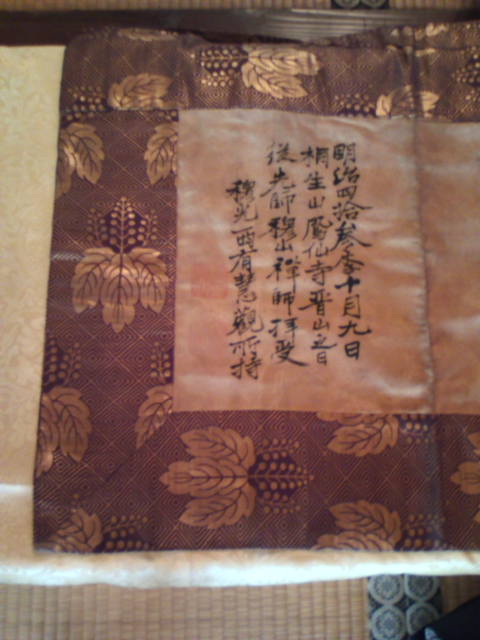 明治四拾叁季十月九日
桐生山鳳仙寺晋山之日
從先師穆山禅師拝受
穆光西有慧觀所持